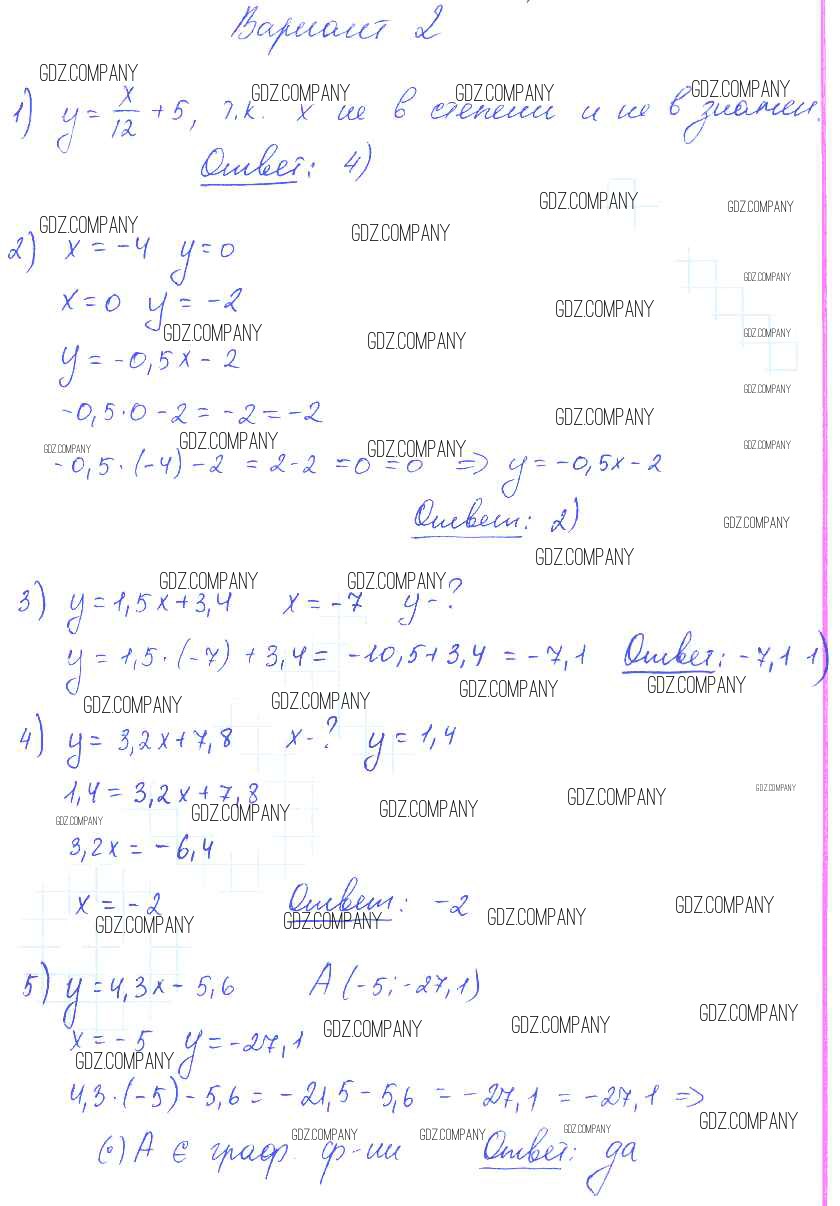 Вариант 2
GDZ.COMPANY
GDZ.COMPANY GDZ.COMPANY GDZ.COMPANY
1) y = x/12 + 5, т.к. x не в степени и не в знамен.
Ответ: 4)
GDZ.COMPANY GDZ.COMPANY
GDZ.COMPANY GDZ.COMPANY
2) x = -4 y = 0
GDZ.COMPANY
x = 0 y = -2
GDZ.COMPANY
GDZ.COMPANY GDZ.COMPANY GDZ.COMPANY
y = -0,5x - 2
GDZ.COMPANY
-0,5·0 - 2 = -2 = -2
GDZ.COMPANY
GDZ.COMPANY GDZ.COMPANY GDZ.COMPANY GDZ.COMPANY
-0,5·(-4) - 2 = 2-2 = 0 = 0 => y = -0,5x - 2
Ответ: 2)
GDZ.COMPANY
GDZ.COMPANY
GDZ.COMPANY GDZ.COMPANY
3) y = 1,5x + 3,4 x = -7 y - ?
y = 1,5·(-7) + 3,4 = -10,5 + 3,4 = -7,1 Ответ: -7,1 1)
GDZ.COMPANY GDZ.COMPANY GDZ.COMPANY GDZ.COMPANY
4) y = 3,2x + 7,8 x - ? y = 1,4
1,4 = 3,2x + 7,8
GDZ.COMPANY
GDZ.COMPANY GDZ.COMPANY GDZ.COMPANY GDZ.COMPANY
3,2x = -6,4
x = -2 Ответ: -2
GDZ.COMPANY GDZ.COMPANY GDZ.COMPANY GDZ.COMPANY
5) y = 4,3x - 5,6 A (-5; -27,1)
GDZ.COMPANY GDZ.COMPANY GDZ.COMPANY
x = -5 y = -27,1
GDZ.COMPANY
4,3·(-5) - 5,6 = -21,5 - 5,6 = -27,1 = -27,1 =>
GDZ.COMPANY
GDZ.COMPANY GDZ.COMPANY GDZ.COMPANY
(•) A ∈ граф. ф-ии Ответ: да